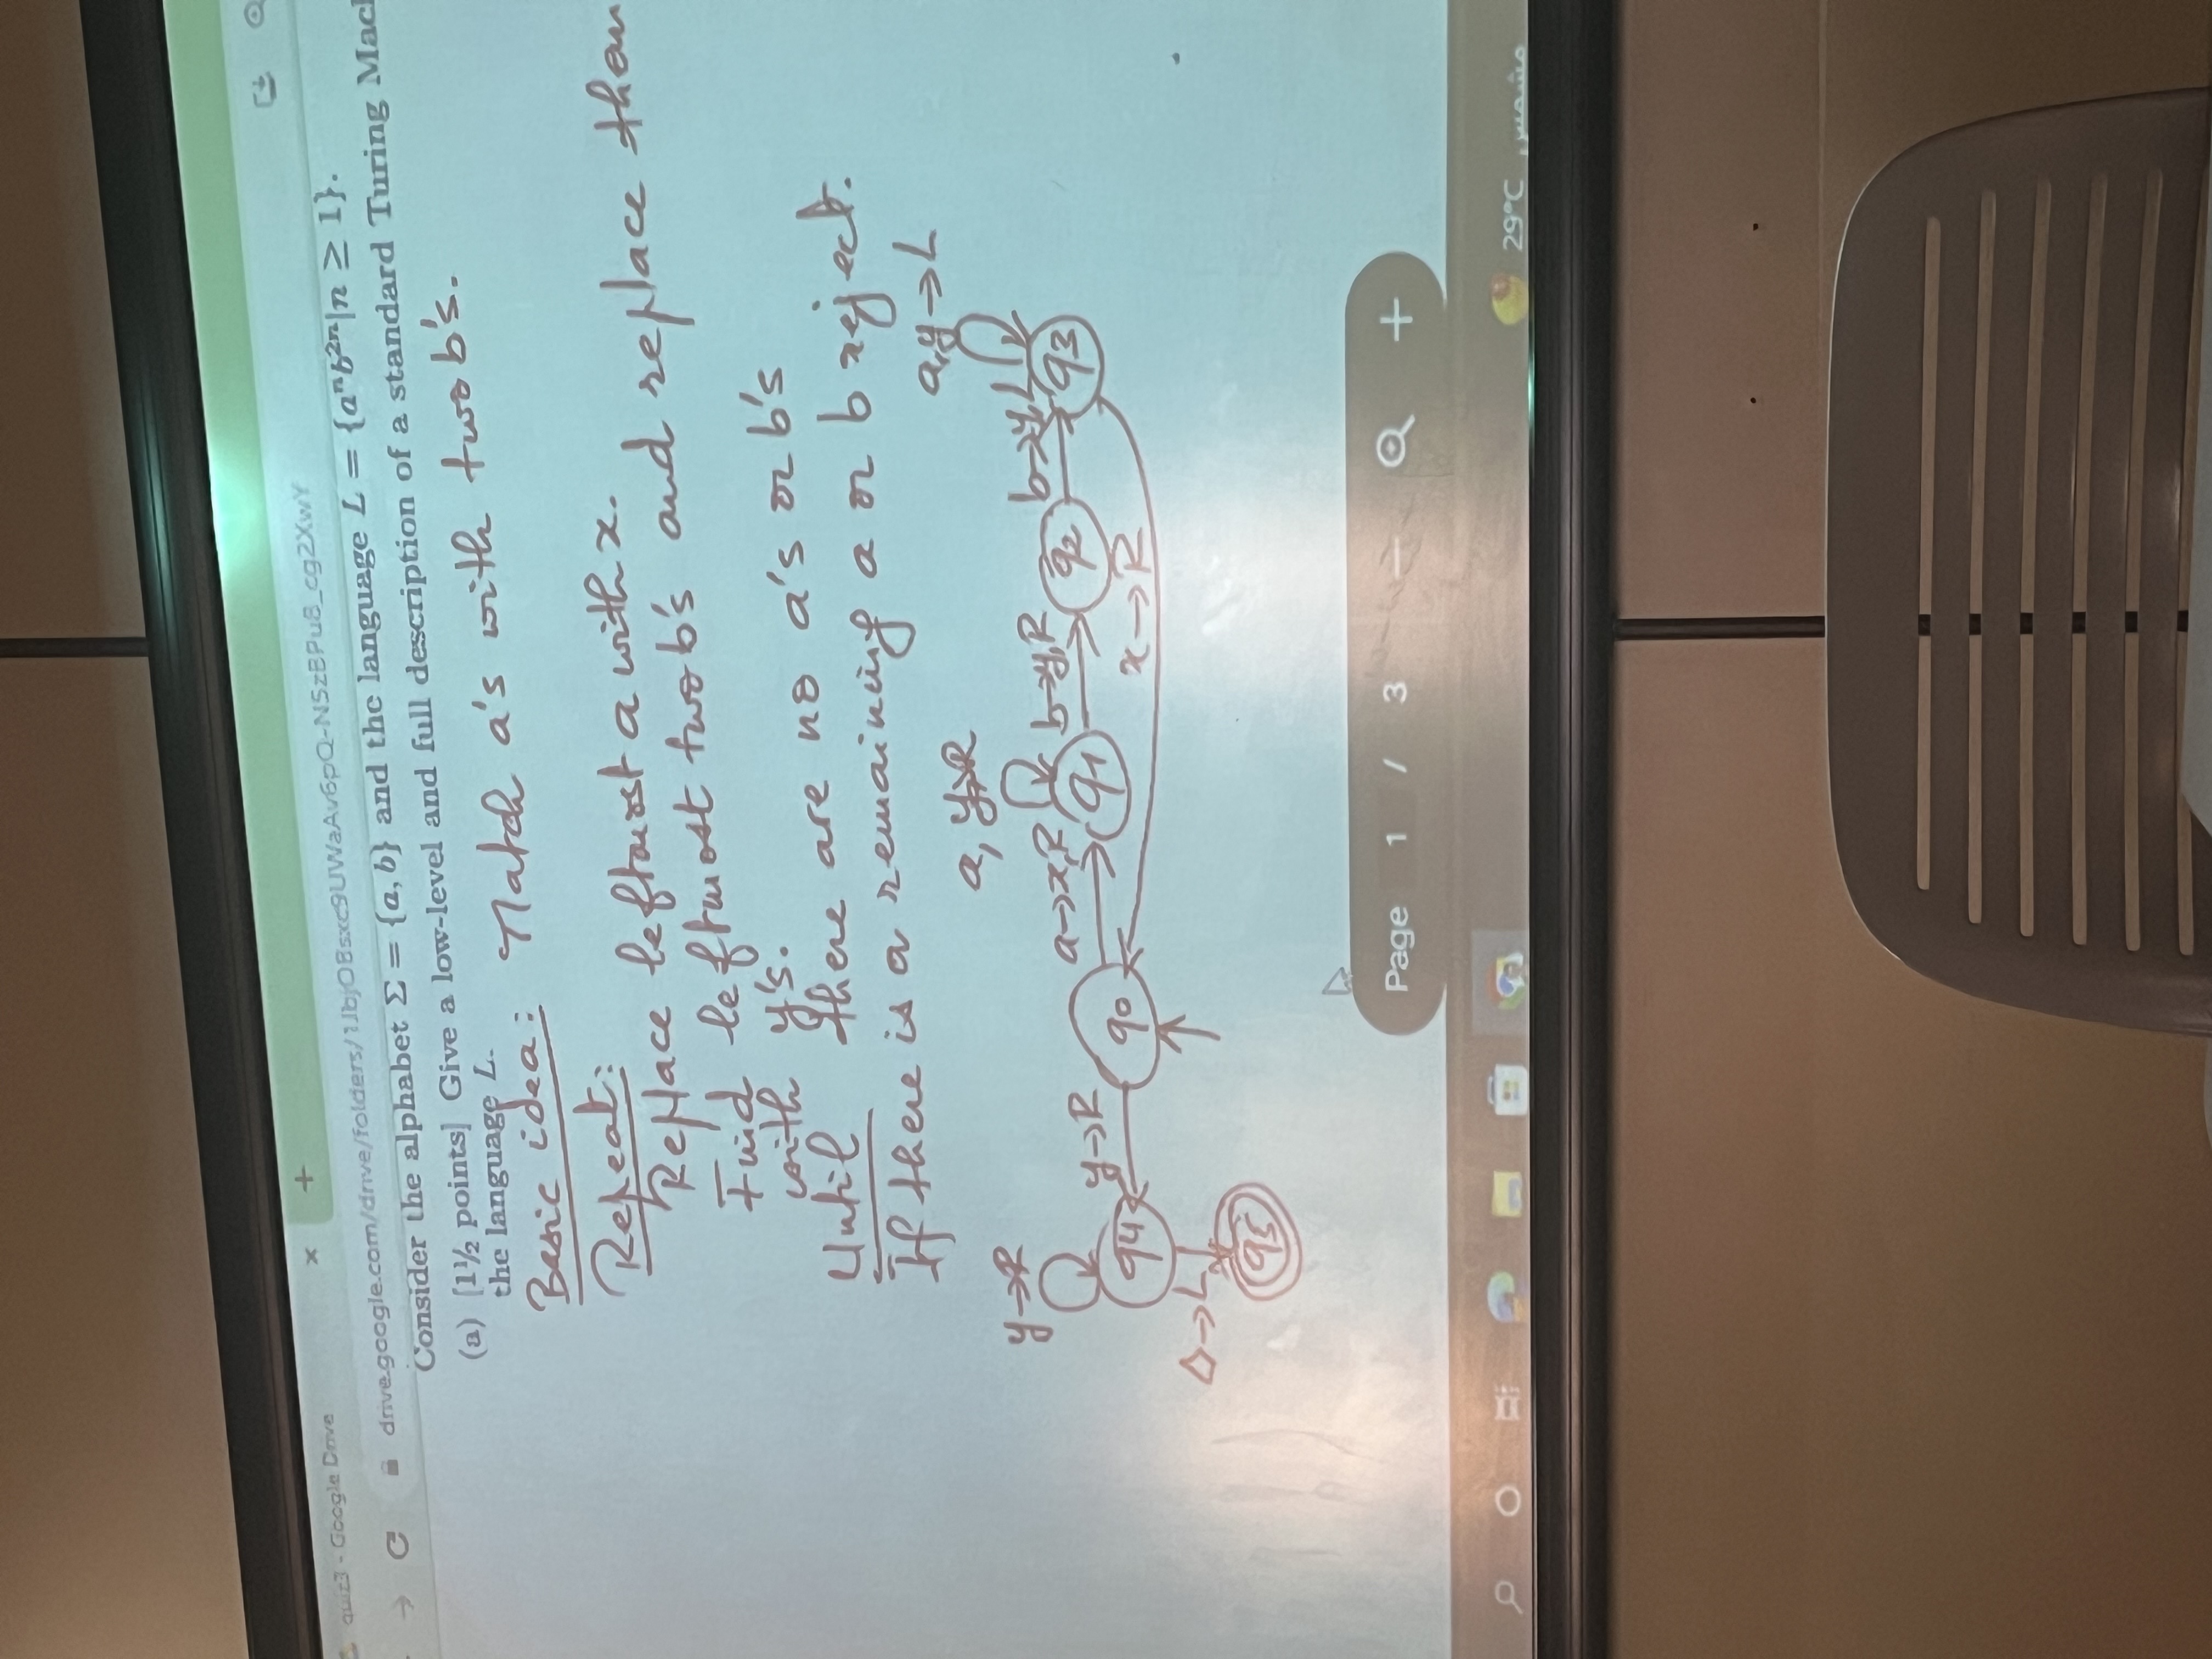 quiz3 - Google Drive
drive.google.com/drive/folders/1JbjOBsxc9UWaAv6pQ-N5zBPu8_cg2XwY
Consider the alphabet Σ = {a, b} and the language L = {aⁿb²ⁿ|n ≥ 1}.
(a) [1½ points] Give a low-level and full description of a standard Turing Mach
the language L.
Basic idea: Match a's with two b's.
Repeat:
Replace leftmost a with x.
Find leftmost two b's and replace them
with y's.
Until there are no a's or b's
If there is a remaining a or b reject.
a,y→L
a, y→R
y→R
b→y,L
b→y,R
a→x,R
y→R
q4 q0 q1 q2 q3
x→R
◊→L
q5
Page 1 / 3
29°C مشمس